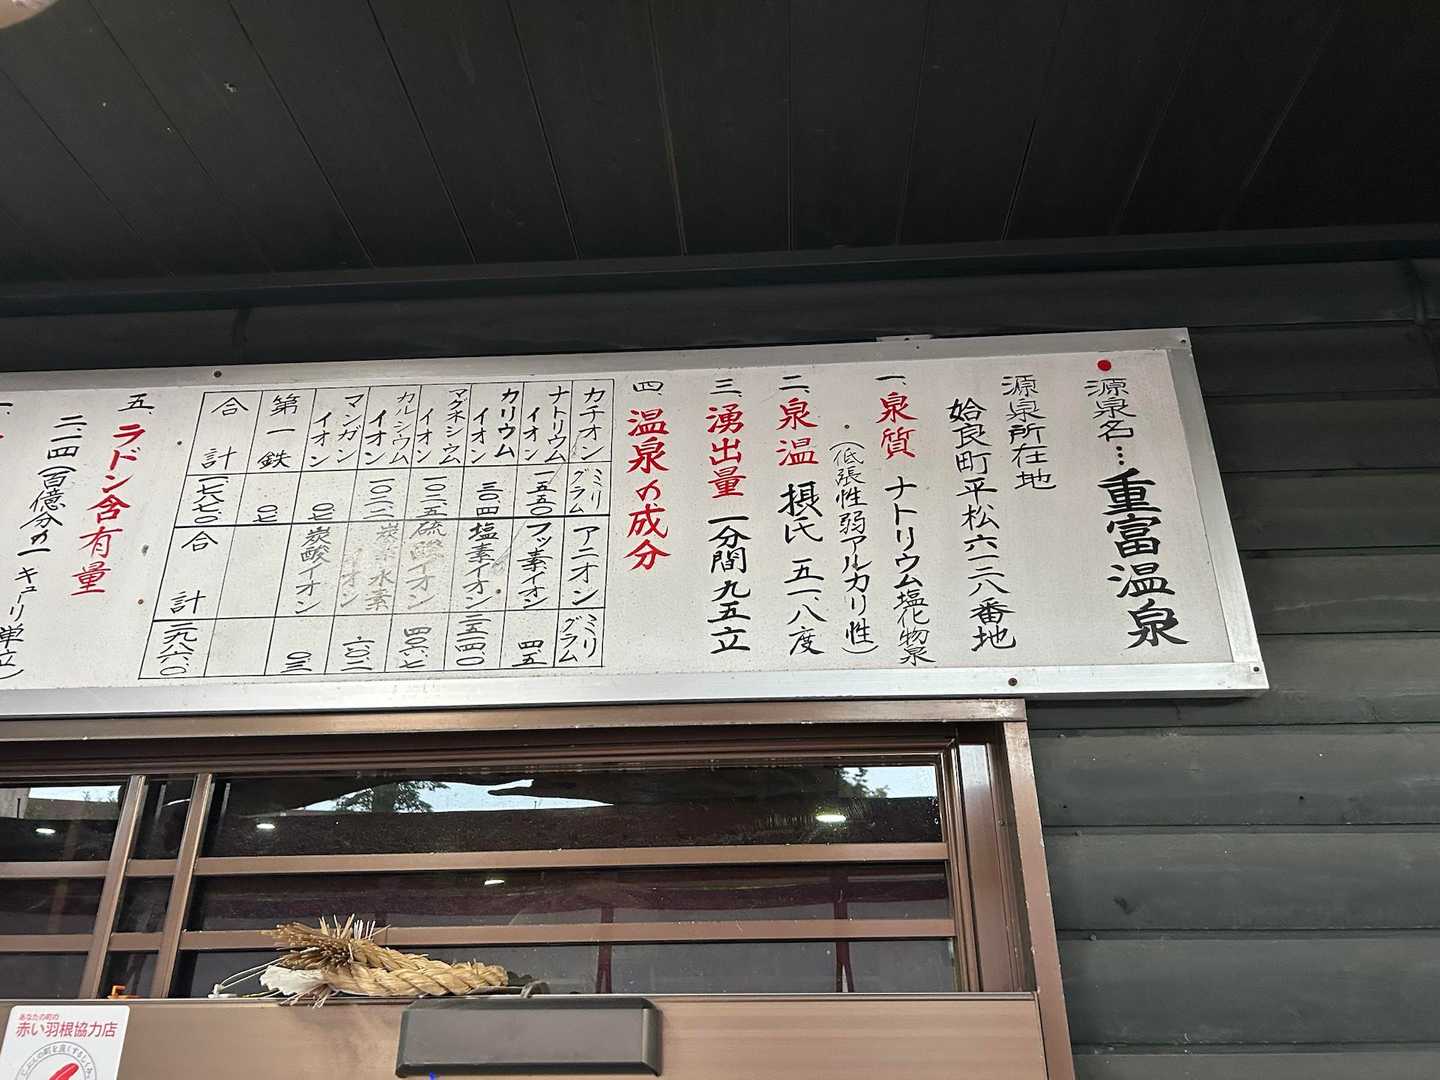 源泉名…重富温泉
源泉所在地
姶良町平松六一二八番地
一、泉質 ナトリウム塩化物泉
（低張性弱アルカリ性）
二、泉温 摂氏 五一、八度
三、湧出量 一分間九五立
四、温泉の成分
カチオン ミリグラム アニオン ミリグラム
ナトリウムイオン 一五五〇 フッ素イオン 四五
カリウムイオン 三〇、四 塩素イオン 二五一四〇
マグネシウムイオン 一〇二、五 硫酸イオン 四〇六、七
カルシウムイオン 炭 水素イオン
マンガンイオン 〇七 炭酸イオン 〇三
第一鉄 〇七
合計 一七八七、〇 合計 二九八六、〇
五、ラドン含有量
二、一四（百億分の一キュリ単立）
あなたの町の
赤い羽根協力店